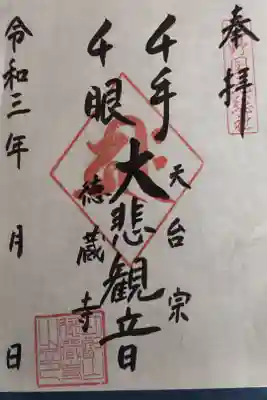 奉拝
千手
千眼
大悲観音
天台宗
徳蔵寺
令和三年 月 日